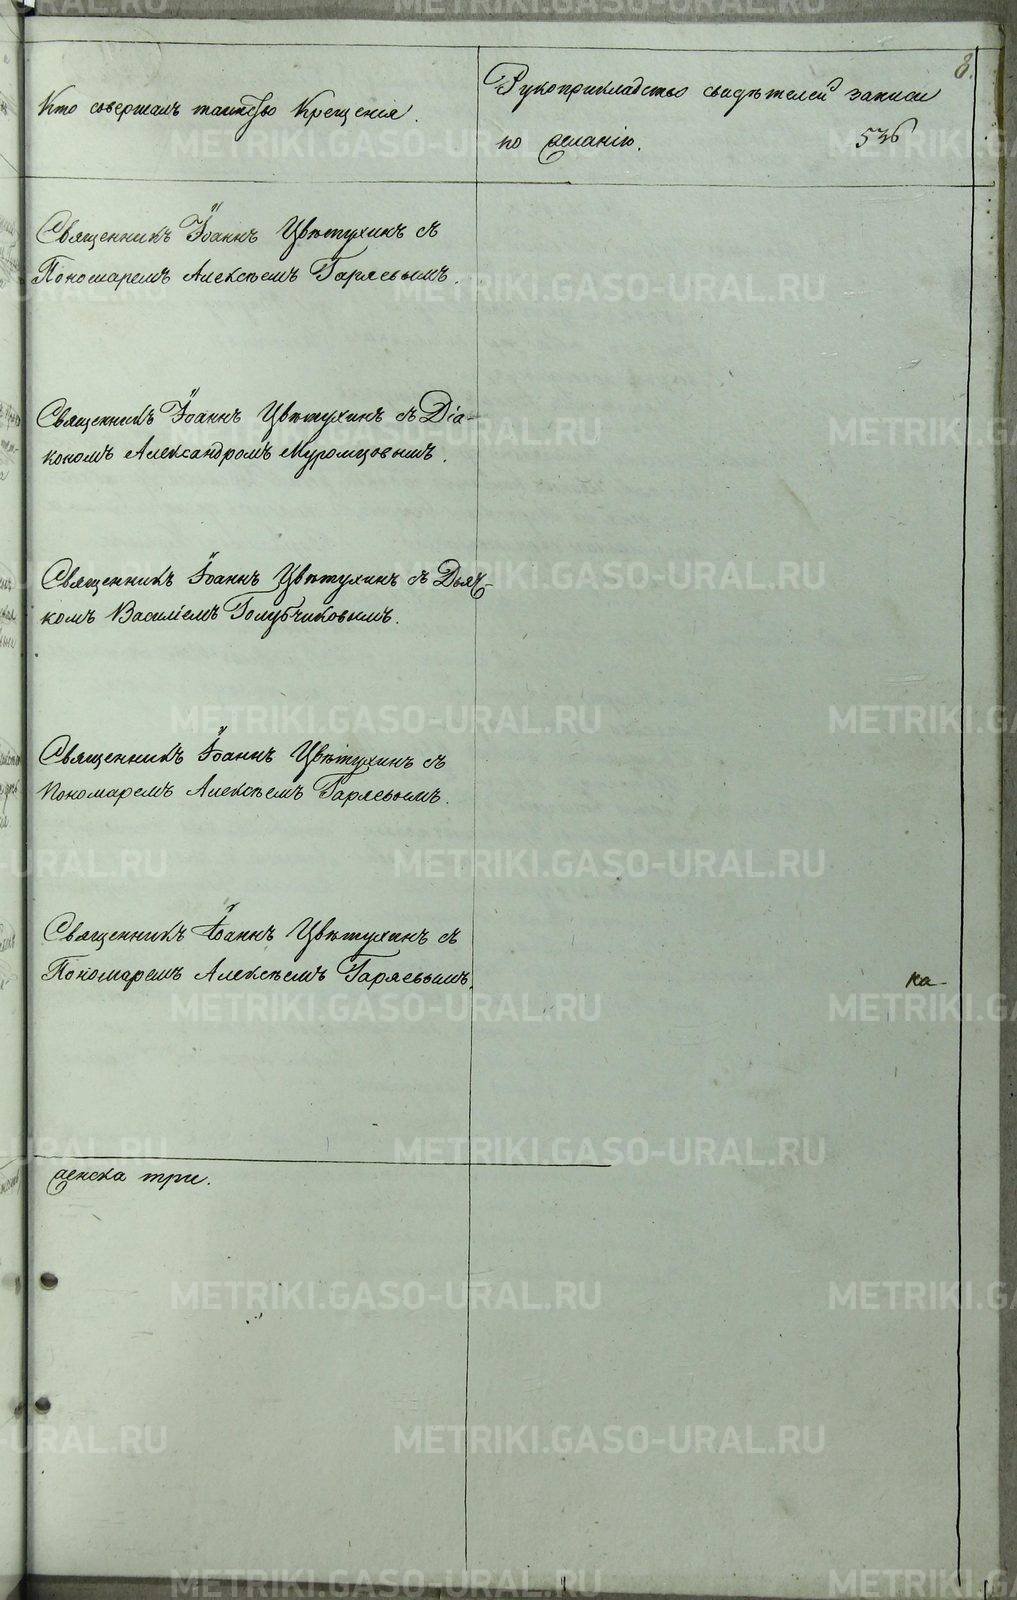 8.
Кто совершалъ таинство Крещенія.
Рукоприкладство свидѣтелей записи
по желанію.
536
Священникъ Іоаннъ Цвѣтухинъ съ
Пономаремъ Алексѣемъ Гаряевымъ.
Священникъ Іоаннъ Цвѣтухинъ съ Діа-
кономъ Александромъ Муромцовымъ.
Священникъ Іоаннъ Цвѣтухинъ съ Дьяч-
комъ Василіемъ Голубчиковымъ.
Священникъ Іоаннъ Цвѣтухинъ съ
Пономаремъ Алексѣемъ Гаряевымъ.
Священникъ Іоаннъ Цвѣтухинъ съ
Пономаремъ Алексѣемъ Гаряевымъ.
ка-
женска три.
METRIKI.GASO-URAL.RU